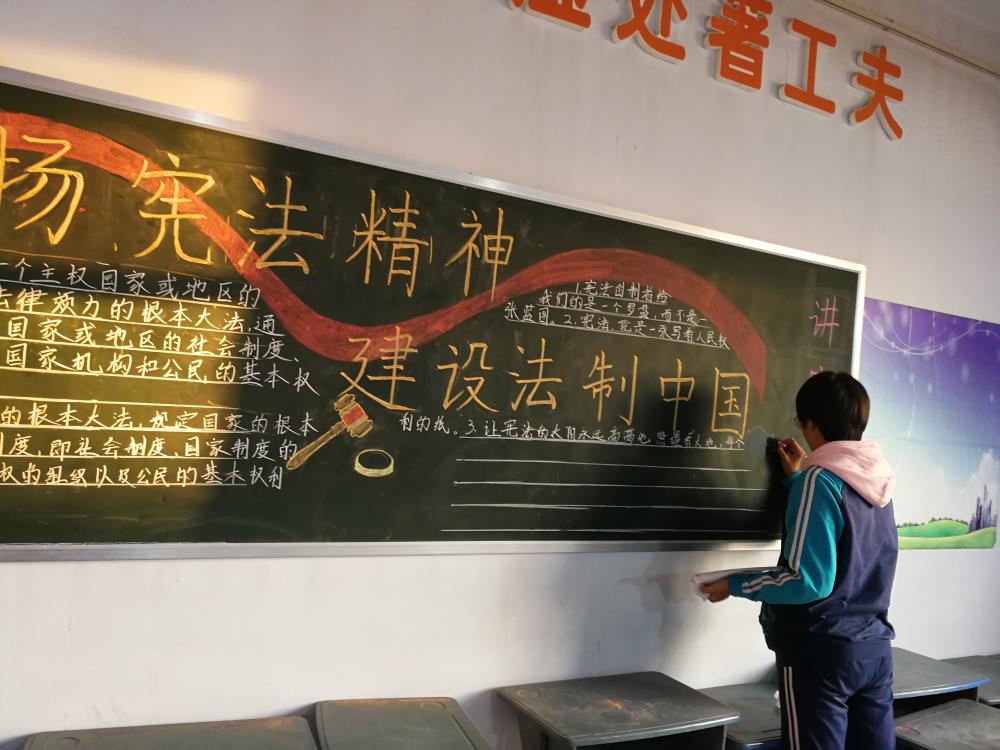 处署工夫
扬宪法精神
一个主权国家或地区的
法律效力的根本大法,通
国家或地区的社会制度、
国家机构和公民的基本权
的根本大法,规定国家的根本
制度,即社会制度、国家制度的
权的组织以及公民的基本权利
1.宪法
我们的是一个罗盘,而不是一
张蓝图。2.宪法,就是一张写着人民权
建设法制中国
利的纸。3.让宪法的太阳永远高高地照耀着大地,每个
讲